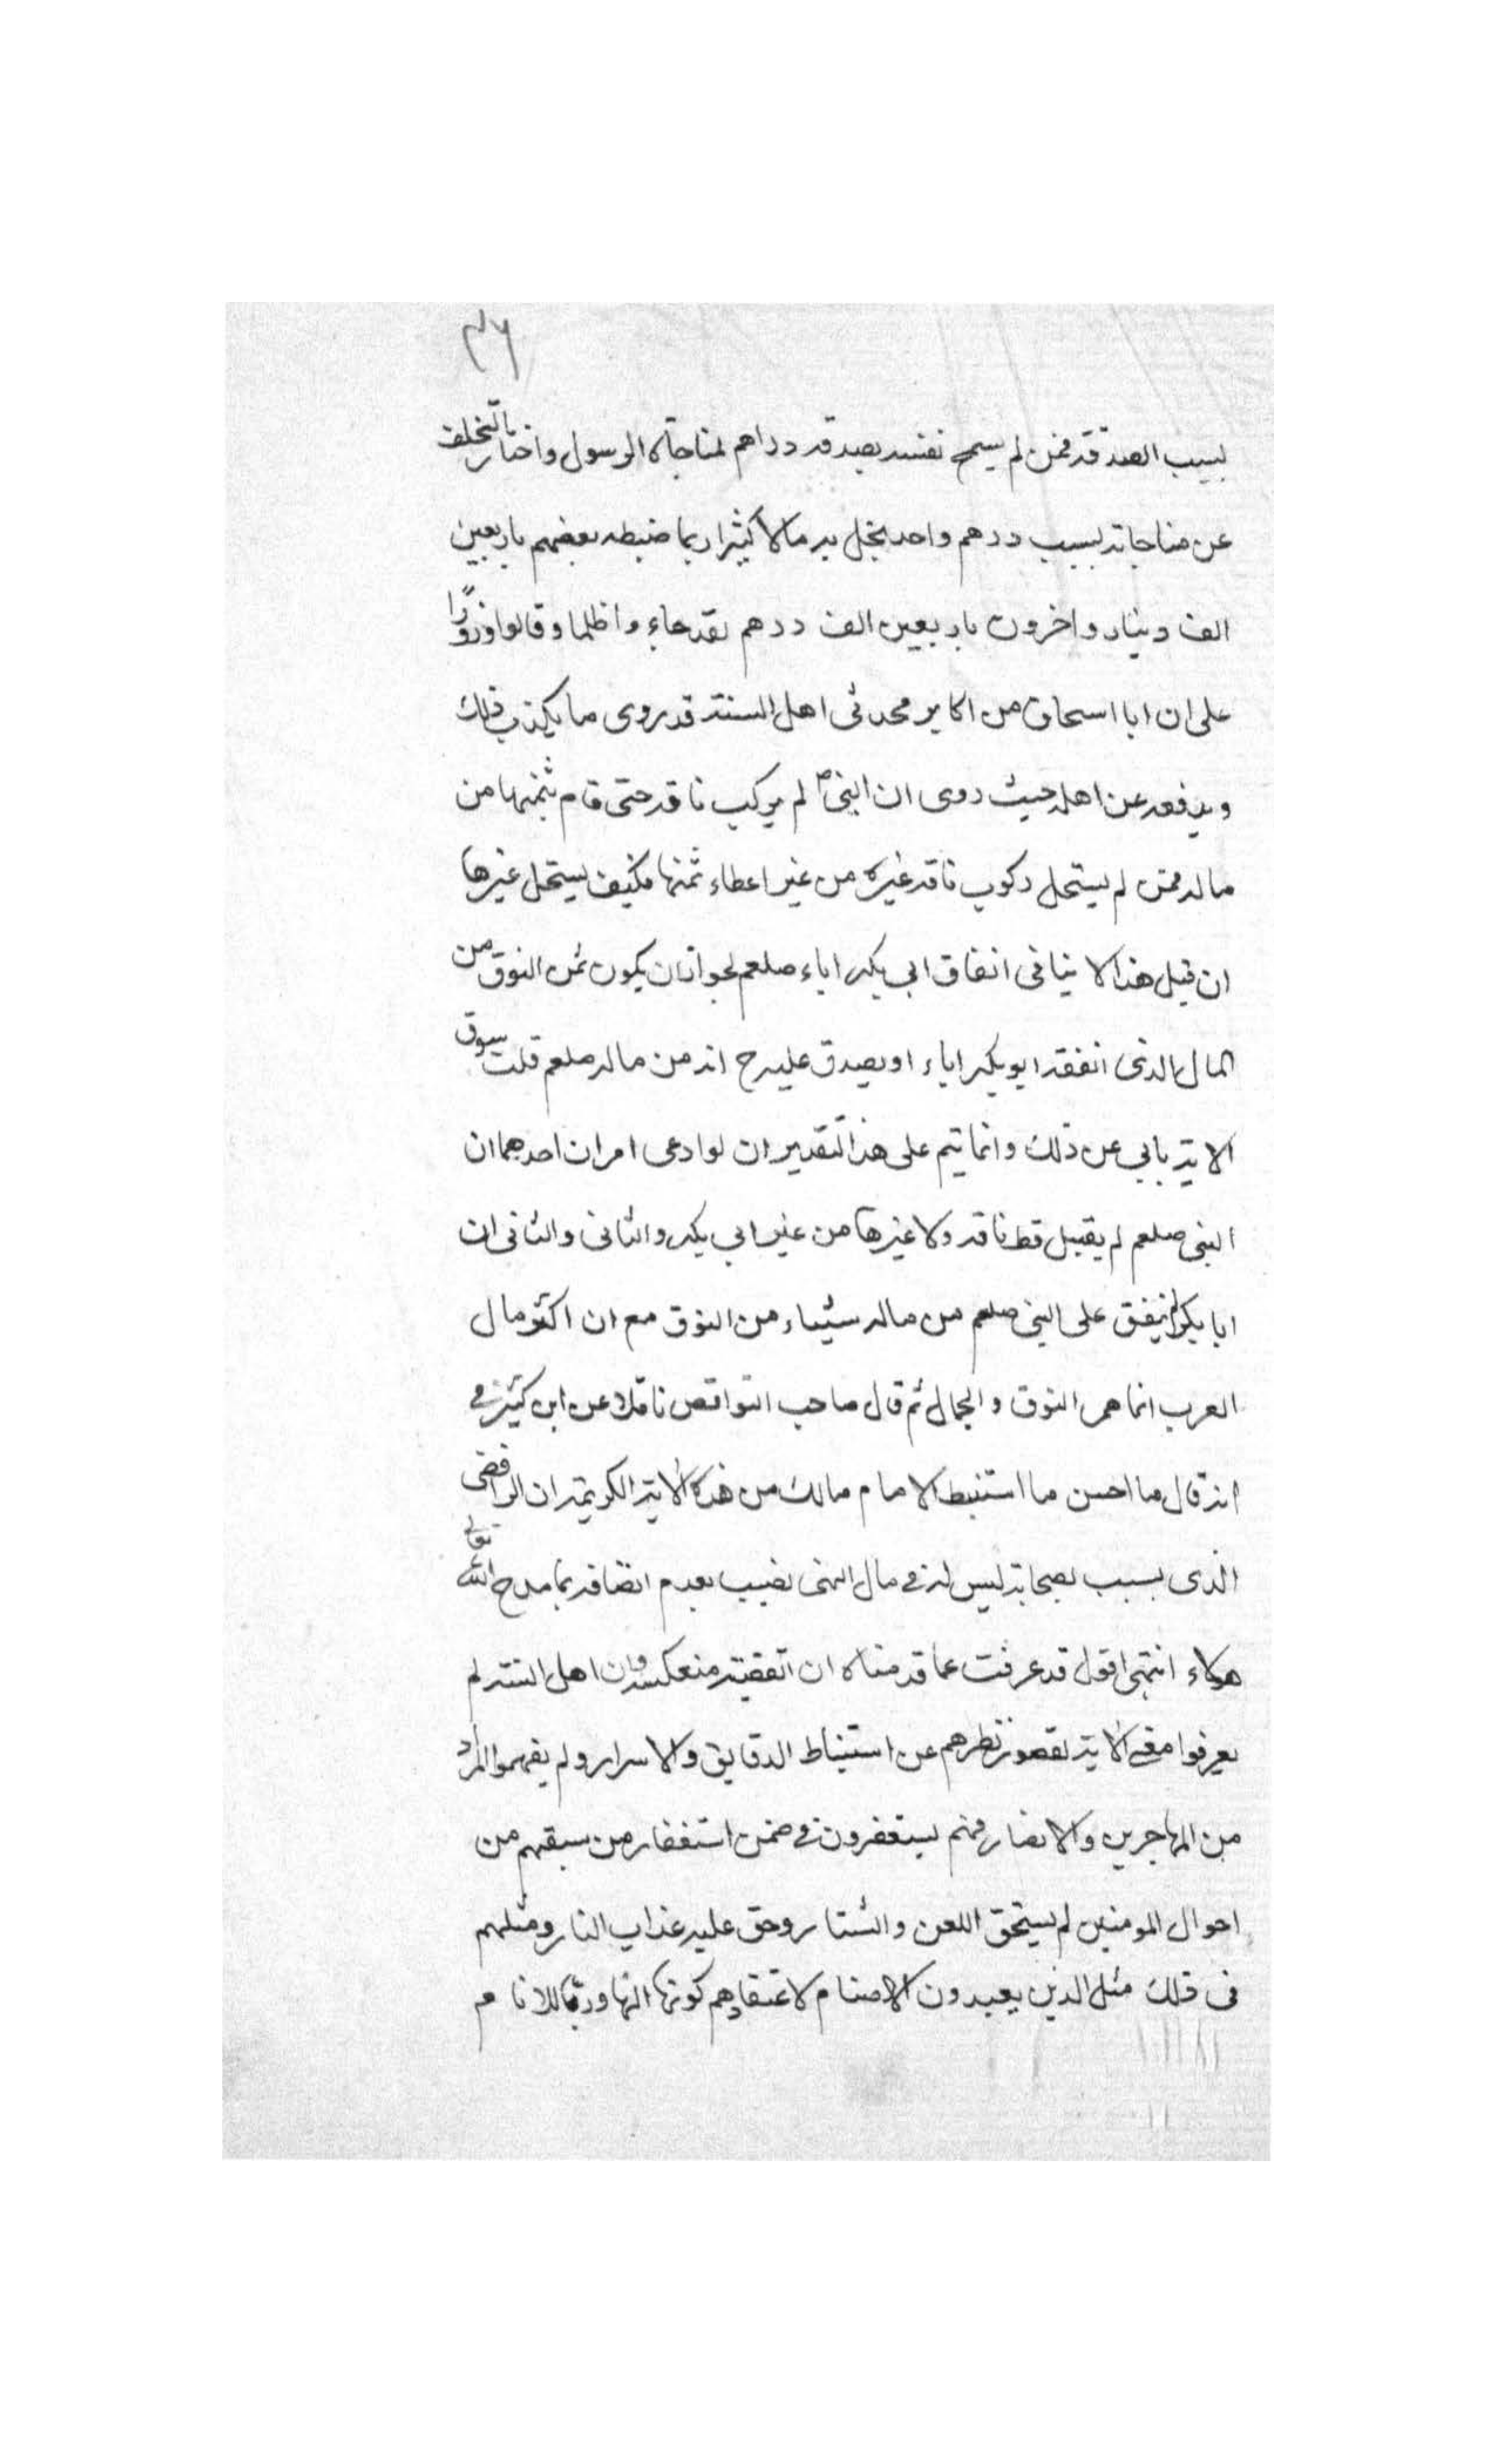 ٣٦
بسبب الصدقة فمن لم يسمح نفسه بصدقه دراهم لمناجاة الرسول واختار التخلف
عن مناجاته بسبب درهم واحد يخل به مالا كثيرا ربما ضبطه بعضهم باربعين
الف دينار واخرون باربعين الف درهم لقد جاء واظلما وقالوا زورًا
على ان ابا اسحاق من اكابر محدثى اهل السنة قد روى ما يكذب ذلك
ويدفعه عن اهله حيث روى ان النبى ص لم يركب ناقه حتى قام بثمنها من
ماله فمن لم يستحل ركوب ناقه غيره من غير اعطاء ثمنها فكيف يستحل غيرها
ان قيل هذا لا ينافى انفاق ابي بكر اياه صلعم لجواز ان يكون ثمن النوق من
المال الذى انفقه ابوبكر اياه او يصدق عليه ح انه من ماله صلعم قلت سوق
الاية يابي عن ذلك وانما يتم على هذا التقدير ان لو ادعى امران احدهما ان
النبى صلعم لم يقبل قط ناقه ولا غيرها من غير ابي بكر والثانى والثانى ان
ابا بكر لم ينفق على النبى صلعم من ماله شيئا من النوق مع ان اكثر مال
العرب انما هى النوق والجمال ثم قال صاحب النواقض ناقلا عن ابن كثير فى
انه قال ما احسن ما استنبط الامام مالك من هذه الاية الكريمة ان الرافضى
الذى بسبب الصحابة ليس له فى مال الفىء نصيب بعدم اتصافه بما مدح الله تعالى
هؤلاء انتهى اقول قد عرفت مما قدمناه ان القضية منعكسة وان اهل السنة لم
يعرفوا معنى الاية لقصور نظرهم عن استنباط الدقايق والاسرار ولم يفهموا المراد
من المهاجرين والانصار فهم يستغفرون فى ضمن استغفار من سبقهم من
احوال المومنين لم يستحق اللعن والشتار وحق عليه عذاب النار ومثلهم
فى ذلك مثل الذين يعبدون الاصنام لاعتقادهم كونها الها وربا للانام